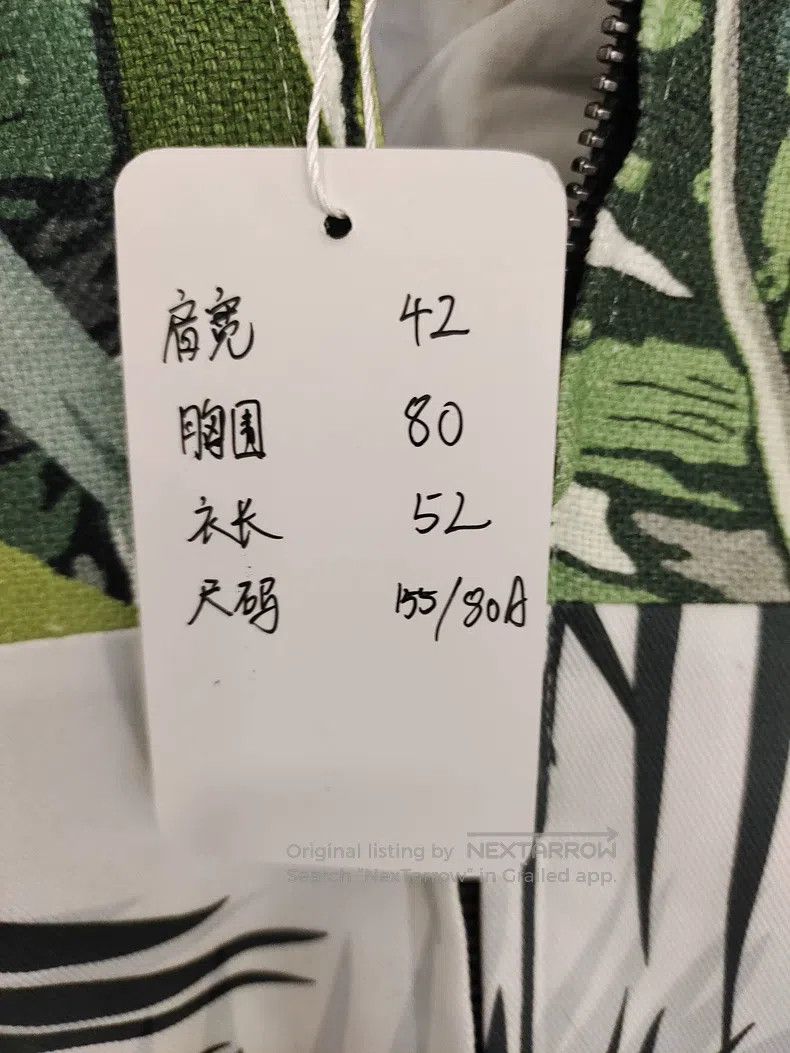 肩宽 42
胸围 80
衣长 52
尺码 155/80A
Original listing by NEXTARROW
Search "NexTarrow" in Grailed app.